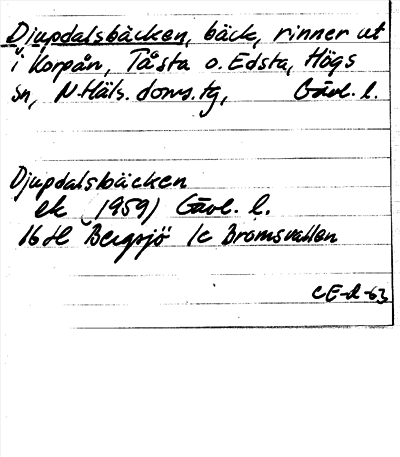 Djupdalsbäcken, bäck, rinner ut
i Korpån, Tåsta o. Edsta, Högs
sn, N Häls. doms. tg, Gävl. l.
Djupdalsbäcken
ek (1959) Gävl. l.
16H Bergsjö 1c Bromsvallen
CE-R-63